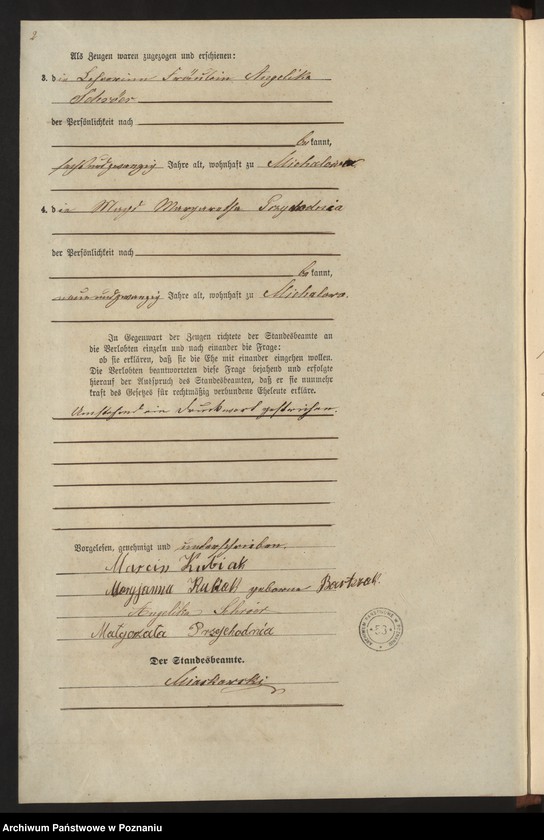 2
Als Zeugen waren zugezogen und erschienen:
3. die Lehrerinn Fräulein Angelika
Schröer
der Persönlichkeit nach
bekannt,
sechsundzwanzig Jahre alt, wohnhaft zu Michalowo
4. die Magd Margaretha Przychodnia
der Persönlichkeit nach
bekannt,
neunundzwanzig Jahre alt, wohnhaft zu Michalowo.
In Gegenwart der Zeugen richtete der Standesbeamte an
die Verlobten einzeln und nach einander die Frage:
ob sie erklären, daß sie die Ehe mit einander eingehen wollen.
Die Verlobten beantworteten diese Frage bejahend und erfolgte
hierauf der Ausspruch des Standesbeamten, daß er sie nunmehr
kraft des Gesetzes für rechtmäßig verbundene Eheleute erkläre.
Umstehend ein Druckwort gestrichen.
Vorgelesen, genehmigt und unterschrieben.
Marcin Kubiak
Maryjanna Kubiak geborene
Angelika Schröer
Małgorzata Przychodnia
Der Standesbeamte.
Miaskowski
53
Archiwum Państwowe w Poznaniu